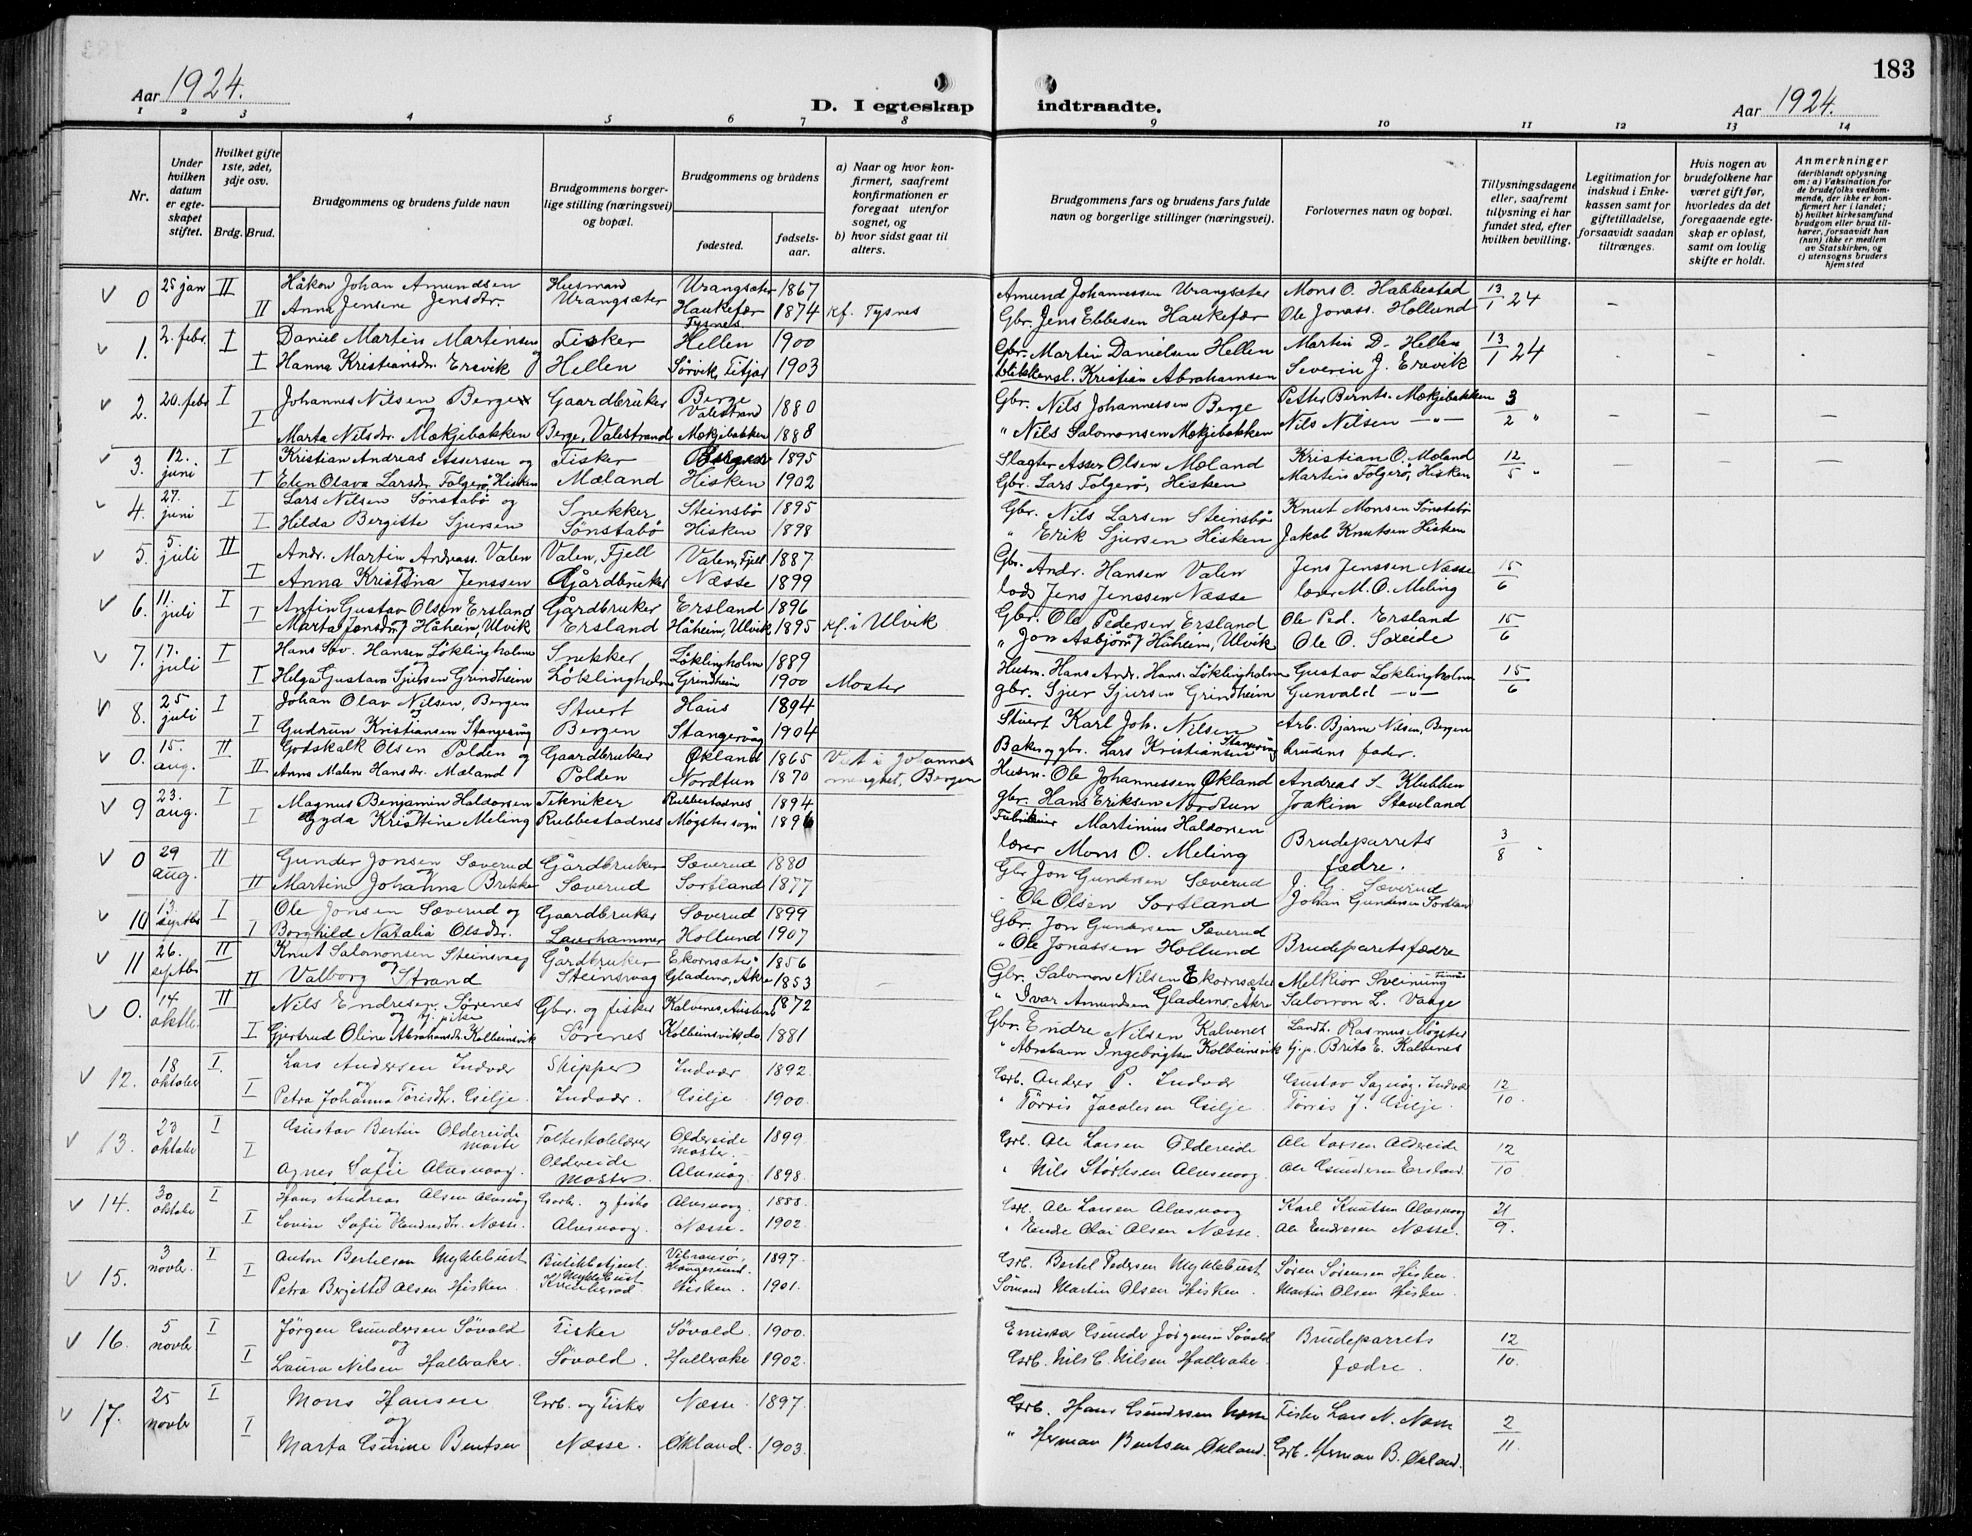 183
Aar 1924.
D. I egteskap indtraadte.
Aar 1924.
1 2 3 4 5 6 7 8 9 10 11 12 13 14
Nr.
Under hvilken datum er egteskapet stiftet.
Hvilket gifte 1ste, 2det, 3dje osv.
Brdg. Brud.
Brudgommens og brudens fulde navn
Brudgommens borgerlige stilling (næringsvei) og bopæl.
Brudgommens og brudens
fødested.
fødselsaar.
a) Naar og hvor konfirmert, saafremt konfirmationen er foregaat utenfor sognet, og
b) hvor sidst gaat til alters.
Brudgommens fars og brudens fars fulde navn og borgerlige stillinger (næringsvei).
Forlovernes navn og bopæl.
Tillysningsdagene eller, saafremt tillysning ei har fundet sted, efter hvilken bevilling.
Legitimation for indskud i Enkekassen samt for giftetilladelse, forsaavidt saadan tiltrænges.
Hvis nogen av brudefolkene har været gift før, hvorledes da det foregaaende egteskap er opløst, samt om lovlig skifte er holdt.
Anmerkninger (deriblandt oplysning om: a) Vaksination for de brudefolks vedkommende, der ikke er konfirmert her i landet; b) hvilket kirkesamfund brudgom eller brud tilhører, forsaavidt han (hun) ikke er medlem av Statskirken, og c) utensogns bruders hjemsted
0 25 jan II Håkon Johan Amundsen Husmand Urangsæter 1867 Amund Johannessen Urangsæter Mons O. Habbestad 13/1 24
II Anna Jensine Jensdtr. Urangsæter Haukefær Tysnes 1874 kf. Tysnes Gbr. Jens Ebbesen Haukefær Ole Jonass. Hollund
1. 2. febr. I Daniel Martin Martinsen Fisker Hellen 1900 Gbr. Martin Danielsen Hellen Martin D. Hellen 13/1 24
I Hanna Kristiansdr. Ersvik Hellen Sørvik, Fitjar 1903 Kristian Abrahamsen Severin J. Ersvik
2. 20. febr I Johannes Nilsen Berge Gaardbruker Berge Valestrand 1880 Gbr. Nils Johannessen Berge Petter Bernts. Mækjebakken 3/2 "
I Marta Nilsdr. Mækjebakken Berge, Valestrand Mækjebakken 1888 " Nils Salomonsen Mækjebakken Nils Nilsen -"-
3. 12. juni I Kristian Andreas Assersen og Fisker 1895 Slagter Asser Olsen Mæland Kristian O. Mæland 12/5 "
I Elen Olava Larsdr. Folgerø, Hisken Mæland Hisken 1902 Gbr. Lars Folgerø, Hisken Martin Folgerø, Hisken
4. 27. juni I Lars Nilsen Sønstabø og Snekker Steinsbø 1895 Gbr. Nils Larsen Steinsbø Knut Monsen Sønstabø
I Hilda Bergitte Sjursen Sønstabø Hisken 1898 " Erik Sjursen Hisken Jakob Knutsen Hisken
5. 5. juli II Andr. Martin Andreass. Valen Valen, Fjell Valen, Fjell 1887 Gbr. Andr. Hansen Valen Jens Jenssen Næsse 15/6
I Anna Kristina Jenssen Gjårdbruker Næsse 1899 lods Jens Jenssen Næsse lærer M. O. Meling
6. 11. juli I Anfin Gustav Olsen Ersland Gårdbruker Ersland 1896 Gbr. Ole Pedersen Ersland Ole Ped. Ersland 15/6
I Marta Jonsdr. Håheim, Ulvik Ersland Håheim, Ulvik 1895 kf. i Ulvik " Jon Asbjørns. Håheim, Ulvik Ole O. Sæeide
7. 17. juli I Hans Sev. Hansen Løklingholm Snekker Løklingholm 1889 Husm. Hans Andr. Hans. Løklingholm Gustav Løklingholm 15/6
I Helga Gustava Sjursen Grindheim Løklingholm Grindheim 1900 Moster gbr. Sjur Sjursen Grindheim Gunvald -"-
8. 25 juli I Johan Olav Nilsen, Bergen Stuert Haus 1894 Stuert Karl Joh. Nilsen Arb. Bjarne Nilsen, Bergen
I Gudrun Kristiansen Stangervåg Bergen Stangervåg 1904 Baker og gbr. Lars Kristiansen Stangervåg brudens fader.
0. 15. aug. II Godskalk Olsen Polden og Gaardbruker Økland 1865 Viet i Johannes menighet, Bergen Husm. Ole Johannessen Økland Andreas S. Klubben
II Anna Malene Hansdr. Mæland Polden Nordtun 1870 gbr. Hans Eriksen Nordtun Joakim Staveland
9 23. aug. I Magnus Benjamin Haldorsen Tekniker Rubbestadnes 1894 Martinius Haldorsen Brudeparrets fædre. 3/8 "
I Gyda Kristine Meling Rubbestadnes Møgster sogn 1896 lærer Mons O. Meling
0 29 aug. II Gunder Jonsen Sæverud Gårdbruker Sæverud 1880 Gbr Jon Gundersen Sæverud J. G. Sæverud
II Martine Johanna Brekke Sæverud Sortland 1877 Ole Olsen Sortland Johan Gundersen Sortland
10 13. septbr I Ole Jonsen Sæverud og Gaardbruker Sæverud 1899 Gbr. Jon Gundersen Sæverud Brudeparets fædre
I Borghild Natalia Olsdr. Laurhammer Hollund 1907 " Ole Jonassen Hollund
11 26. septbr II Knut Salomonsen Steinsvaag Gårdbruker Ekornsæter 1856 Gbr. Salomon Nilsen Ekornsæter Melkior Sveinung
II Valborg Strand Steinsvaag Gladeno, Åkre 1853 " Ivar Amundsen Gladeno, Åkre Salomon L. Vaage
0. 14 oktbr. II Nils Endresen Sørenes Gbr. og fisker Kalvenes, Austevo. 1872 Gbr. Endre Nilsen Kalvenes Landh. Rasmus Møgster
I og tj. pike Gjertrud Oline Abrahamsdr. Kolbeinsvik Sørenes Kolbeinsvik do 1881 " Abraham Ingebrigtsen Kolbeinsvik tj. p. Brita E. Kalvenes
12. 18 oktober I Lars Andersen Indvær Skipper Indvær 1892 Grb. Anders P. Indvær Gustav Sagvåg. Indvær 12/10.
I Petra Johanna Tørisdtr. Gilje Indvær. Gilje 1900. " Tørris Jacobsen Gilje. Tørris J. Gilje.
13. 23 oktober I Gustav Bertin Oldereide Moster Folkeskolelærer Oldereide Moster. 1899. Grb. Ole Larsen Oldereide Ole Larsen Oldereide 12/10
I og Agnes Sofie Alvsvaag. Oldereide Moster Alvsvåg. 1898. " Nils Størksen Alvsvaag. Ole Gundersen Ersland.
14. 30 oktober I Hans Andreas Olsen Alvsvåg Gaardb. og fisker Alvsvaag. 1888. Grb. Ole Larsen Alvsvaag Karl Knutsen Alvsvaag 21/9.
I Lovise Sofie Hendresdtr. Næsse. Alvsvaag. Næsse. 1902. " Endre Olai Olsen Næsse. Ole Endresen Næsse.
15. 3 novbr. I Anton Bertelsen Myklebust Butikkbetjent. Vibransø. Haugesund. 1897. Grb. Bertel Pedersen Myklebust Søren Sørensen Hisken.
I Petra Bergitte Olsen Hisken. Myklebust Hisken. 1901. Sømand Martin Olsen Hisken. Martin Olsen Hisken.
16. 5 novbr I Jørgen Gundersen Søvold Fisker Søvold. 1900. Gunder Jørgensen Søvold Brudeparrets fædre. 12/10.
I og Laura Nilsen Hallvaker. Søvold. Hallvake 1902. Grb. Nils C. Nilsen Hallvake.
17. 25 novbr I Mons Hansen Grb. og Fisker Næsse. 1897. Grb. Hans Gundersen Næsse Fisker Lars N. Næsse 2/11.
I og Marta Gurine Bentsen Næsse. Økland. 1903. " Herman Bentsen Økland. Grb. Herman B. Økland.